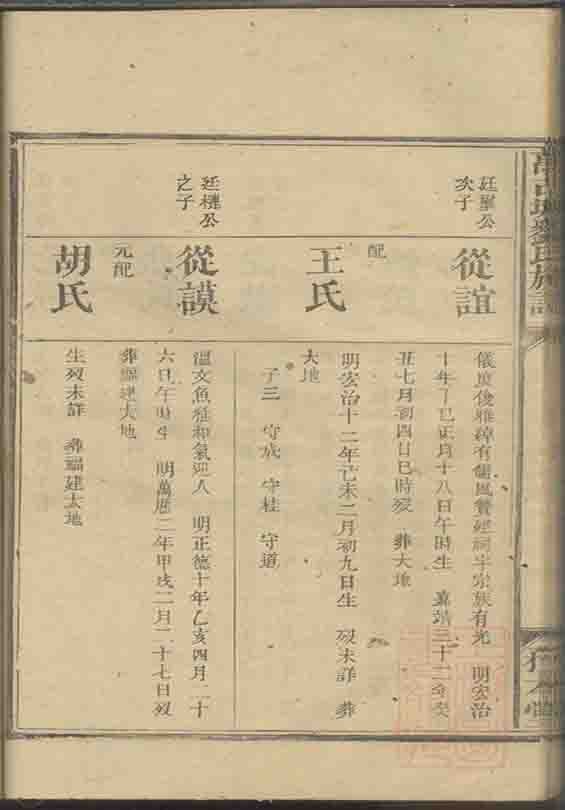 氏族譜
廷璽公
次子
從誼
儀度俊雅綽有儒風贊經祠宇宗族有光 明宏治
十年丁巳正月十八日午時生 嘉靖三十二年癸
丑七月初四日巳時歿 葬大地
配
王氏
明宏治十二年己未二月初九日生 歿未詳 葬
大地
子三 守成 守桂 守道
廷槤公
之子
從謨
溫文魚雅和氣迎人 明正德十年乙亥四月二十
六日午時生 明萬歷二年甲戌二月二十七日歿
葬福建大地
元配
胡氏
生歿未詳 葬福建大地